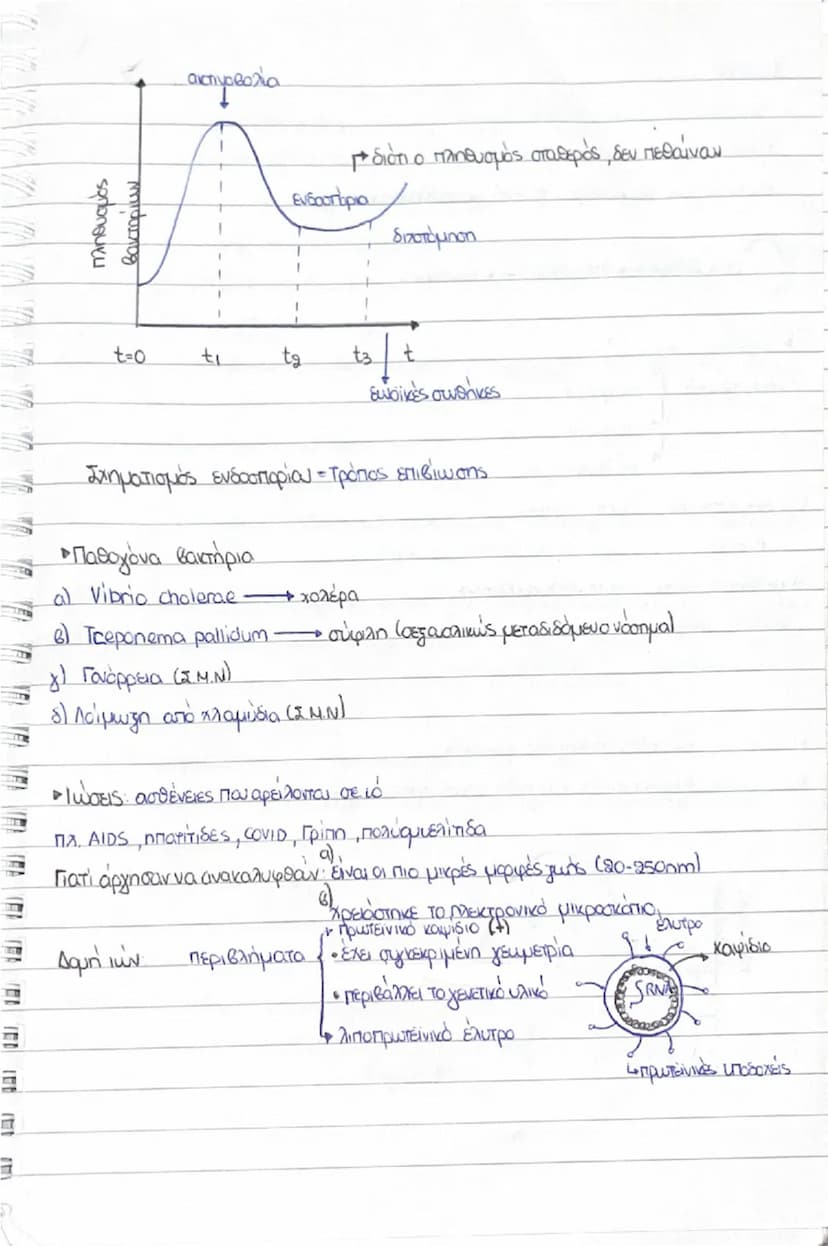 ακτινοβολία
διότι ο πληθυσμός σταθερός, δεν πέθαιναν
πληθυσμός βακτηρίων
ενδοσπόρια
διχοτόμηση
t=0 t₁ t₂ t₃ t
ευνοϊκές συνθήκες
Σχηματισμός ενδοσπορίου = Τρόπος επιβίωσης
Παθογόνα βακτήρια
α) Vibrio cholerae → χολέρα
β) Treponema pallidum → σύφιλη (σεξουαλικώς μεταδιδόμενο νόσημα)
γ) Γονόρροια (Σ.Μ.Ν)
δ) Λοίμωξη από χλαμύδια (Σ.Μ.Ν)
Ιώσεις: ασθένειες που οφείλονται σε ιό
πχ. AIDS, ηπατίτιδες, COVID, Γρίπη, πολυομελίτιδα
Γιατί άργησαν να ανακαλυφθούν: α) είναι οι πιο μικρές μορφές ζωής (20-250nm)
β) χρειάστηκε το ηλεκτρονικό μικροσκόπιο
Δομή ιών: περιβλήματα
πρωτεϊνικό καψίδιο (+)
• έχει συγκεκριμένη γεωμετρία
• περιβάλλει το γενετικό υλικό
λιποπρωτεϊνικό έλυτρο
έλυτρο
καψίδιο
RNA
πρωτεϊνικές υποδοχείς